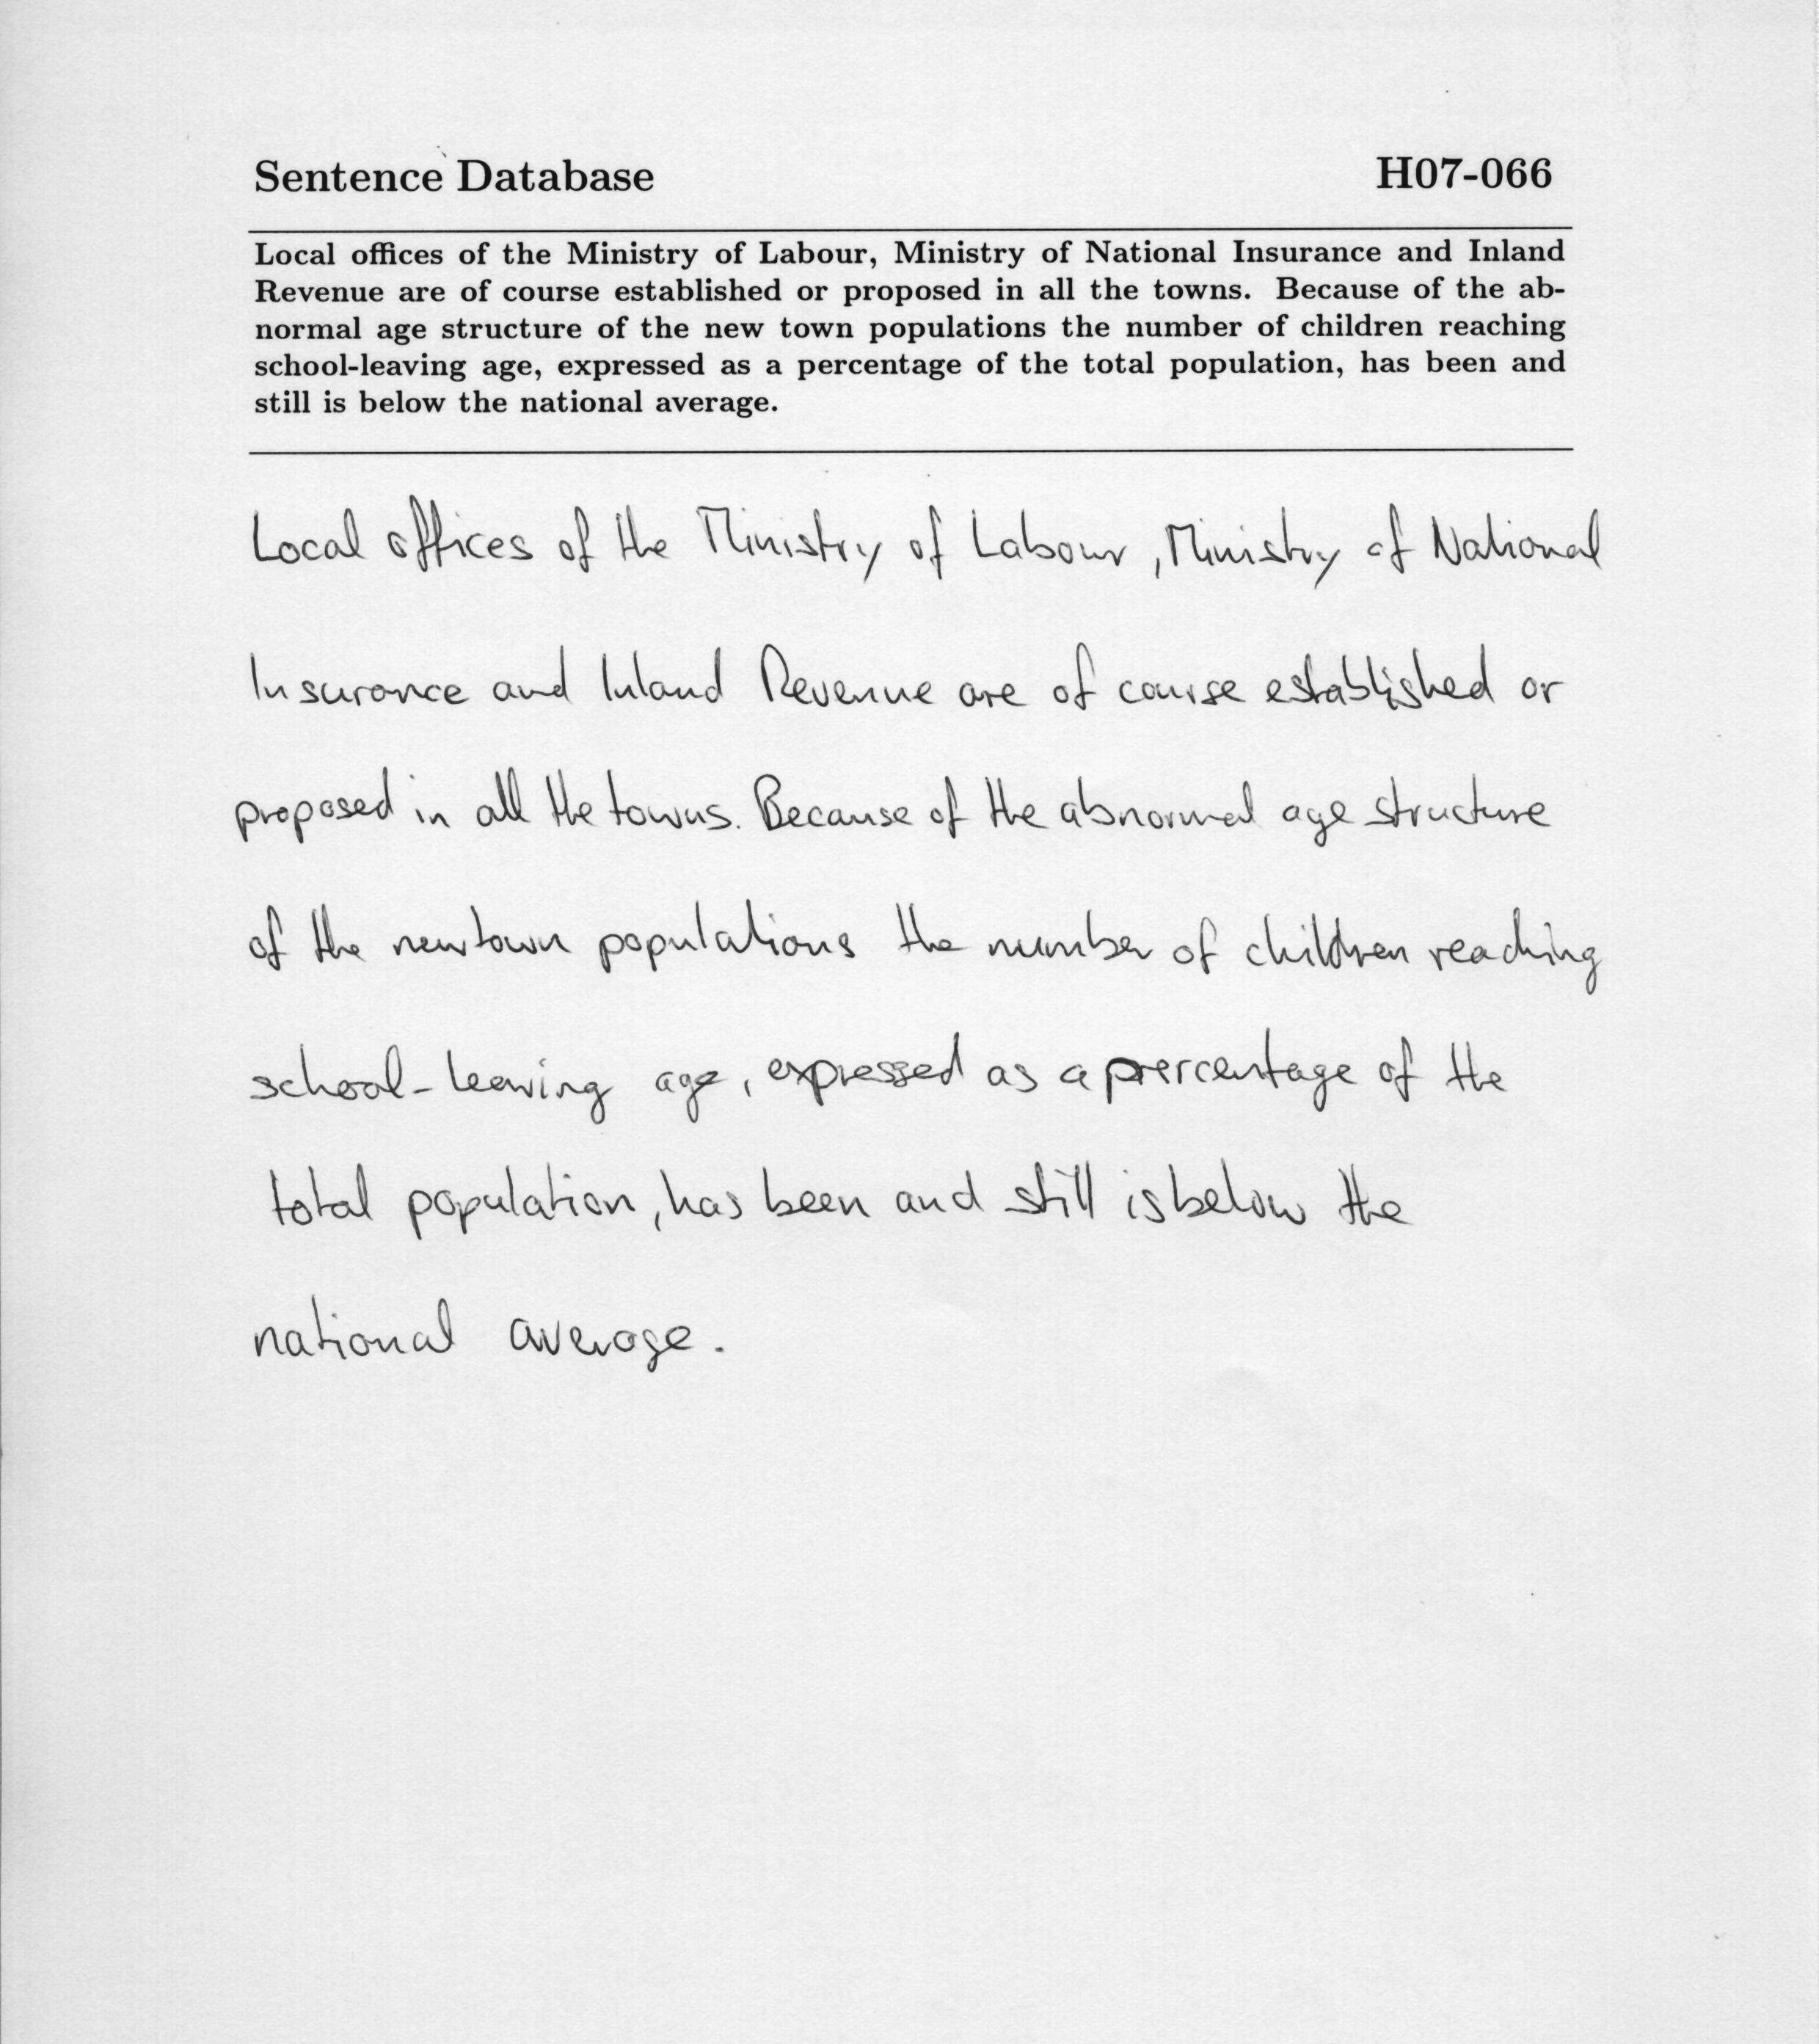 Sentence Database H07-066
Local offices of the Ministry of Labour, Ministry of National Insurance and Inland
Revenue are of course established or proposed in all the towns. Because of the ab-
normal age structure of the new town populations the number of children reaching
school-leaving age, expressed as a percentage of the total population, has been and
still is below the national average.
Local offices of the Ministry of Labour, Ministry of National
Insurance and Inland Revenue are of course established or
proposed in all the towns. Because of the abnormal age structure
of the new town populations the number of children reaching
school-leaving age, expressed as a prercentage of the
total population, has been and still is below the
national average.